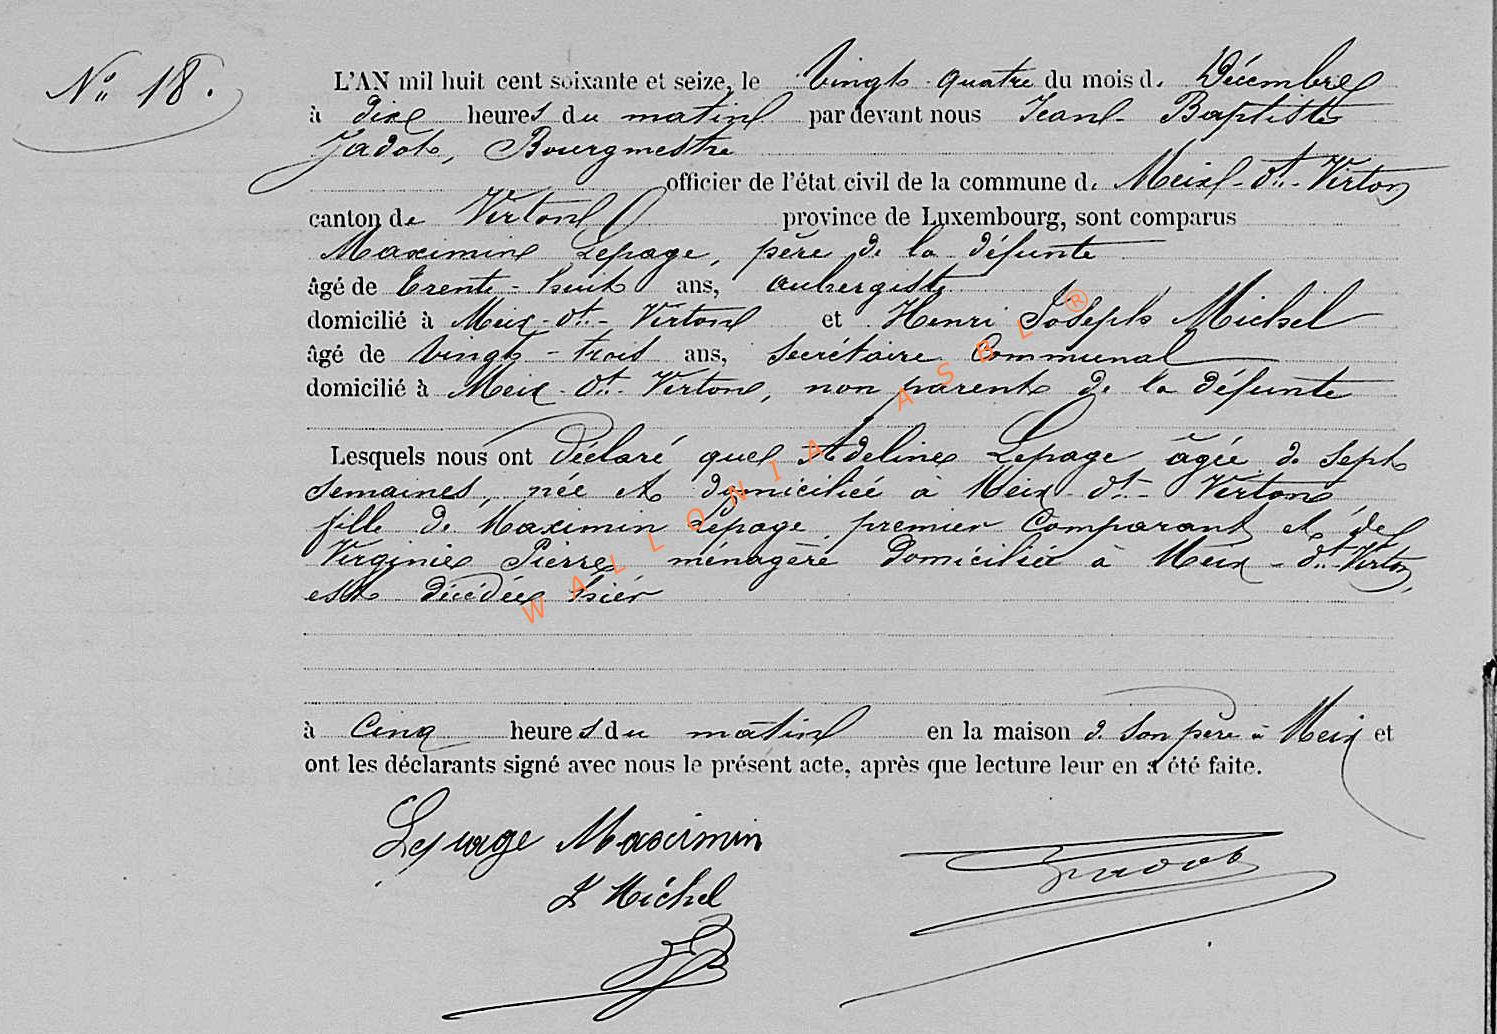 N° 18.
L'AN mil huit cent soixante et seize, le Vingt quatre du mois de Décembre
à dix heures du matin par devant nous Jean Baptiste
Jadot, Bourgmestre
officier de l'état civil de la commune de Meix-dt-Virton
canton de Virton province de Luxembourg, sont comparus
Maximin Lepage, père de la défunte
âgé de trente-huit ans, aubergiste
domicilié à Meix-dt-Virton et Henri Joseph Michel
âgé de vingt-trois ans, secrétaire Communal
domicilié à Meix-dt-Virton, non parent de la défunte
Lesquels nous ont déclaré que Adeline Lepage âgée de sept
semaines, née et domiciliée à Meix-dt-Virton,
fille de Maximin Lepage, premier Comparant et de
Virginie Pierre ménagère domiciliée à Meix-dt-Virton,
est décédée hier
à cinq heures du matin en la maison de son père à Meix et
ont les déclarants signé avec nous le présent acte, après que lecture leur en a été faite.
Lepage Maximin
Jadot
H Michel
WALLONIA ASBL ®